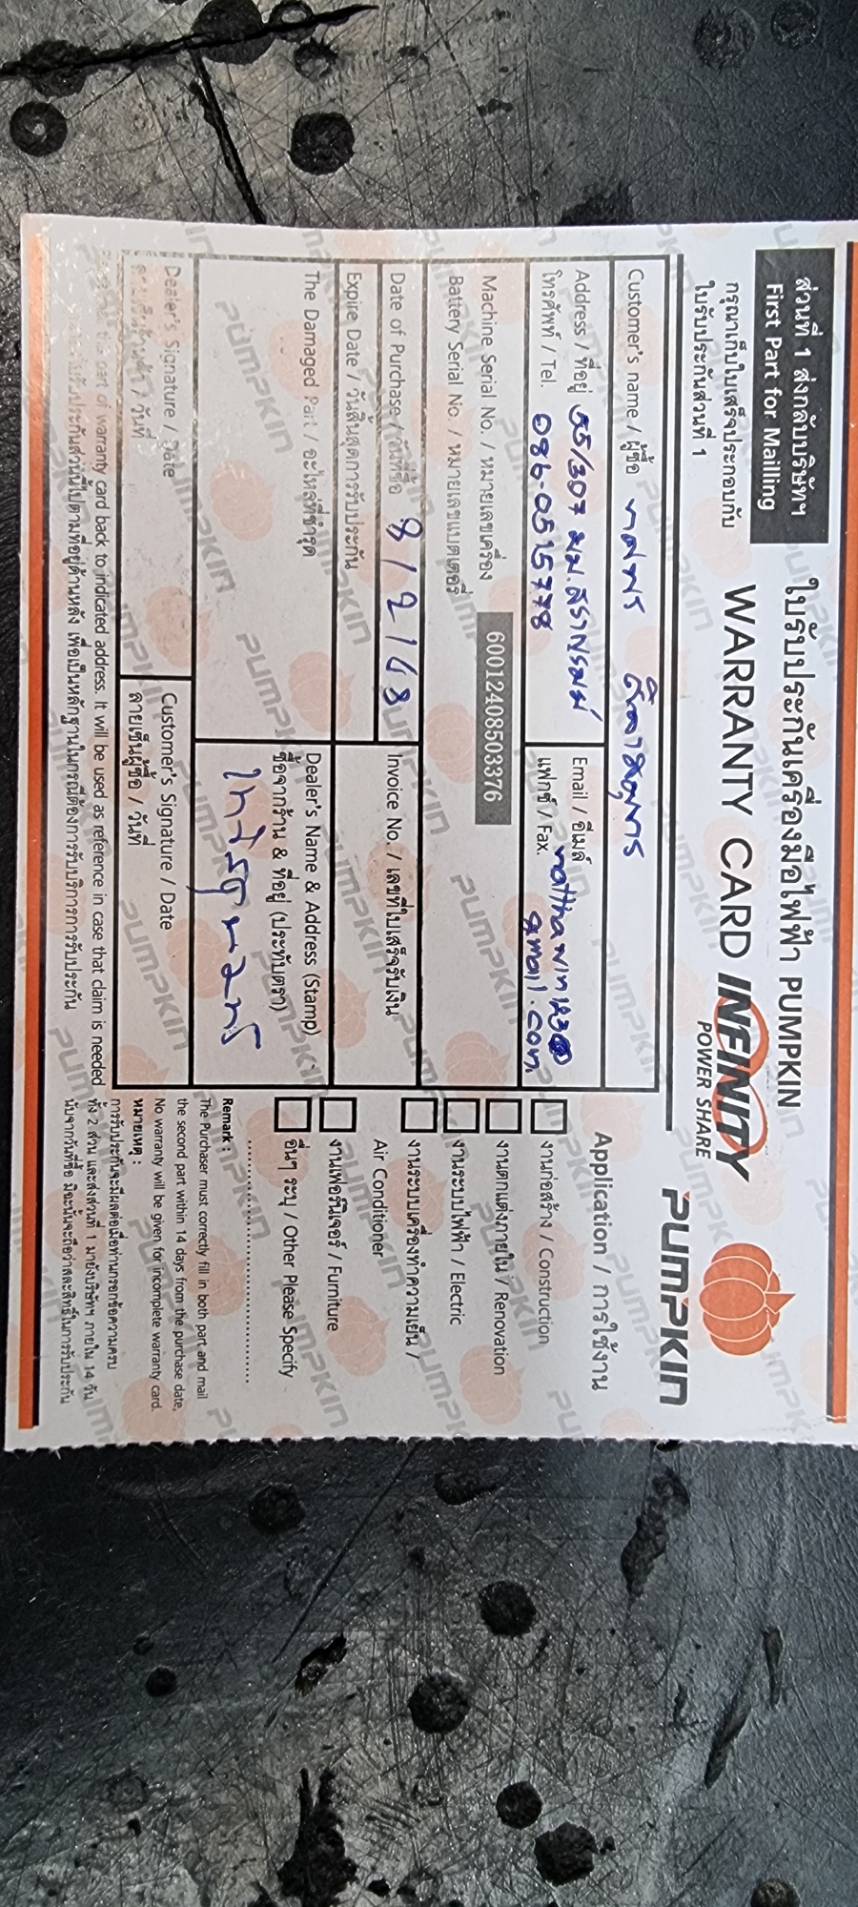 ส่วนที่ 1 ส่งกลับบริษัทฯ
First Part for Mailling
กรุณาเก็บใบเสร็จประกอบกับ
ใบรับประกันส่วนที่ 1
ใบรับประกันเครื่องมือไฟฟ้า PUMPKIN
WARRANTY CARD INFINITY
POWER SHARE
PUMPKIN
Customer's name / ผู้ซื้อ
Address / ที่อยู่ 55/307
โทรศัพท์ / Tel. 086-0515778
Email / อีเมล์ natthawin123@
gmail.com
แฟกซ์ / Fax.
Machine Serial No. / หมายเลขเครื่อง
60012408503376
Battery Serial No. / หมายเลขแบตเตอรี่
Date of Purchase / วันที่ซื้อ 8/2/68
Invoice No. / เลขที่ใบเสร็จรับเงิน
Expire Date / วันสิ้นสุดการรับประกัน
The Damaged Part / อะไหล่ที่ชำรุด
Dealer's Name & Address (Stamp)
ชื่อจากร้าน & ที่อยู่ (ประทับตรา)
Dealer's Signature / Date
Customer's Signature / Date
ลายเซ็นผู้ซื้อ / วันที่
part of warranty card back to indicated address. It will be used as reference in case that claim is needed
รับประกันส่วนนี้ไปตามที่อยู่ด้านหลัง เพื่อเป็นหลักฐานในกรณีต้องการรับบริการการรับประกัน
Application / การใช้งาน
งานก่อสร้าง / Construction
งานตกแต่งภายใน / Renovation
งานระบบไฟฟ้า / Electric
งานระบบเครื่องทำความเย็น /
Air Conditioner
งานเฟอร์นิเจอร์ / Furniture
อื่นๆ ระบุ / Other Please Specify
Remark :
The Purchaser must correctly fill in both part and mail
the second part within 14 days from the purchase date,
No warranty will be given for incomplete warranty card.
หมายเหตุ :
การรับประกันจะมีผลต่อเมื่อท่านกรอกข้อความครบ
ทั้ง 2 ส่วน และส่งส่วนที่ 1 มายังบริษัทฯ ภายใน 14 วัน
นับจากวันที่ซื้อ มิฉะนั้นจะถือว่าสละสิทธิ์ในการรับประกัน